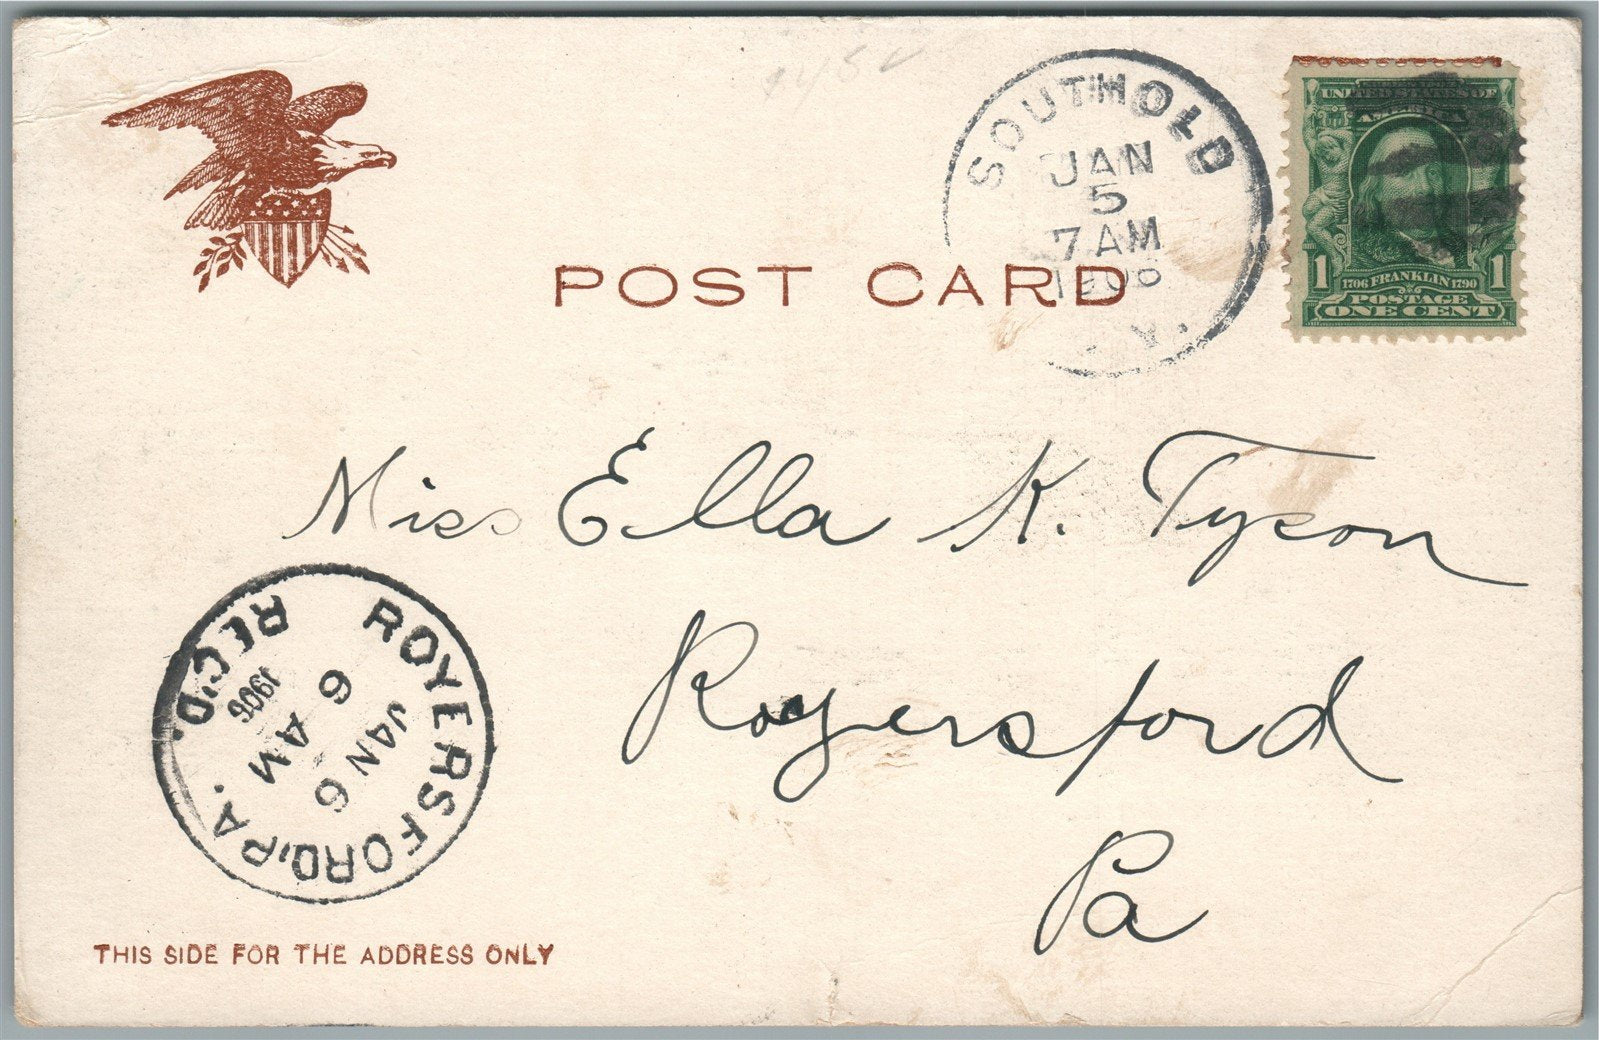 SOUTHOLD
JAN
5
7 AM
1906
UNITED STATES OF
AMERICA
1 1706 FRANKLIN 1790 1
POSTAGE
ONE CENT
POST CARD
Miss Ella K. Tyson
Royersford
Pa
ROYERSFORD, PA.
REC'D.
JAN 6
6 AM
1906
THIS SIDE FOR THE ADDRESS ONLY